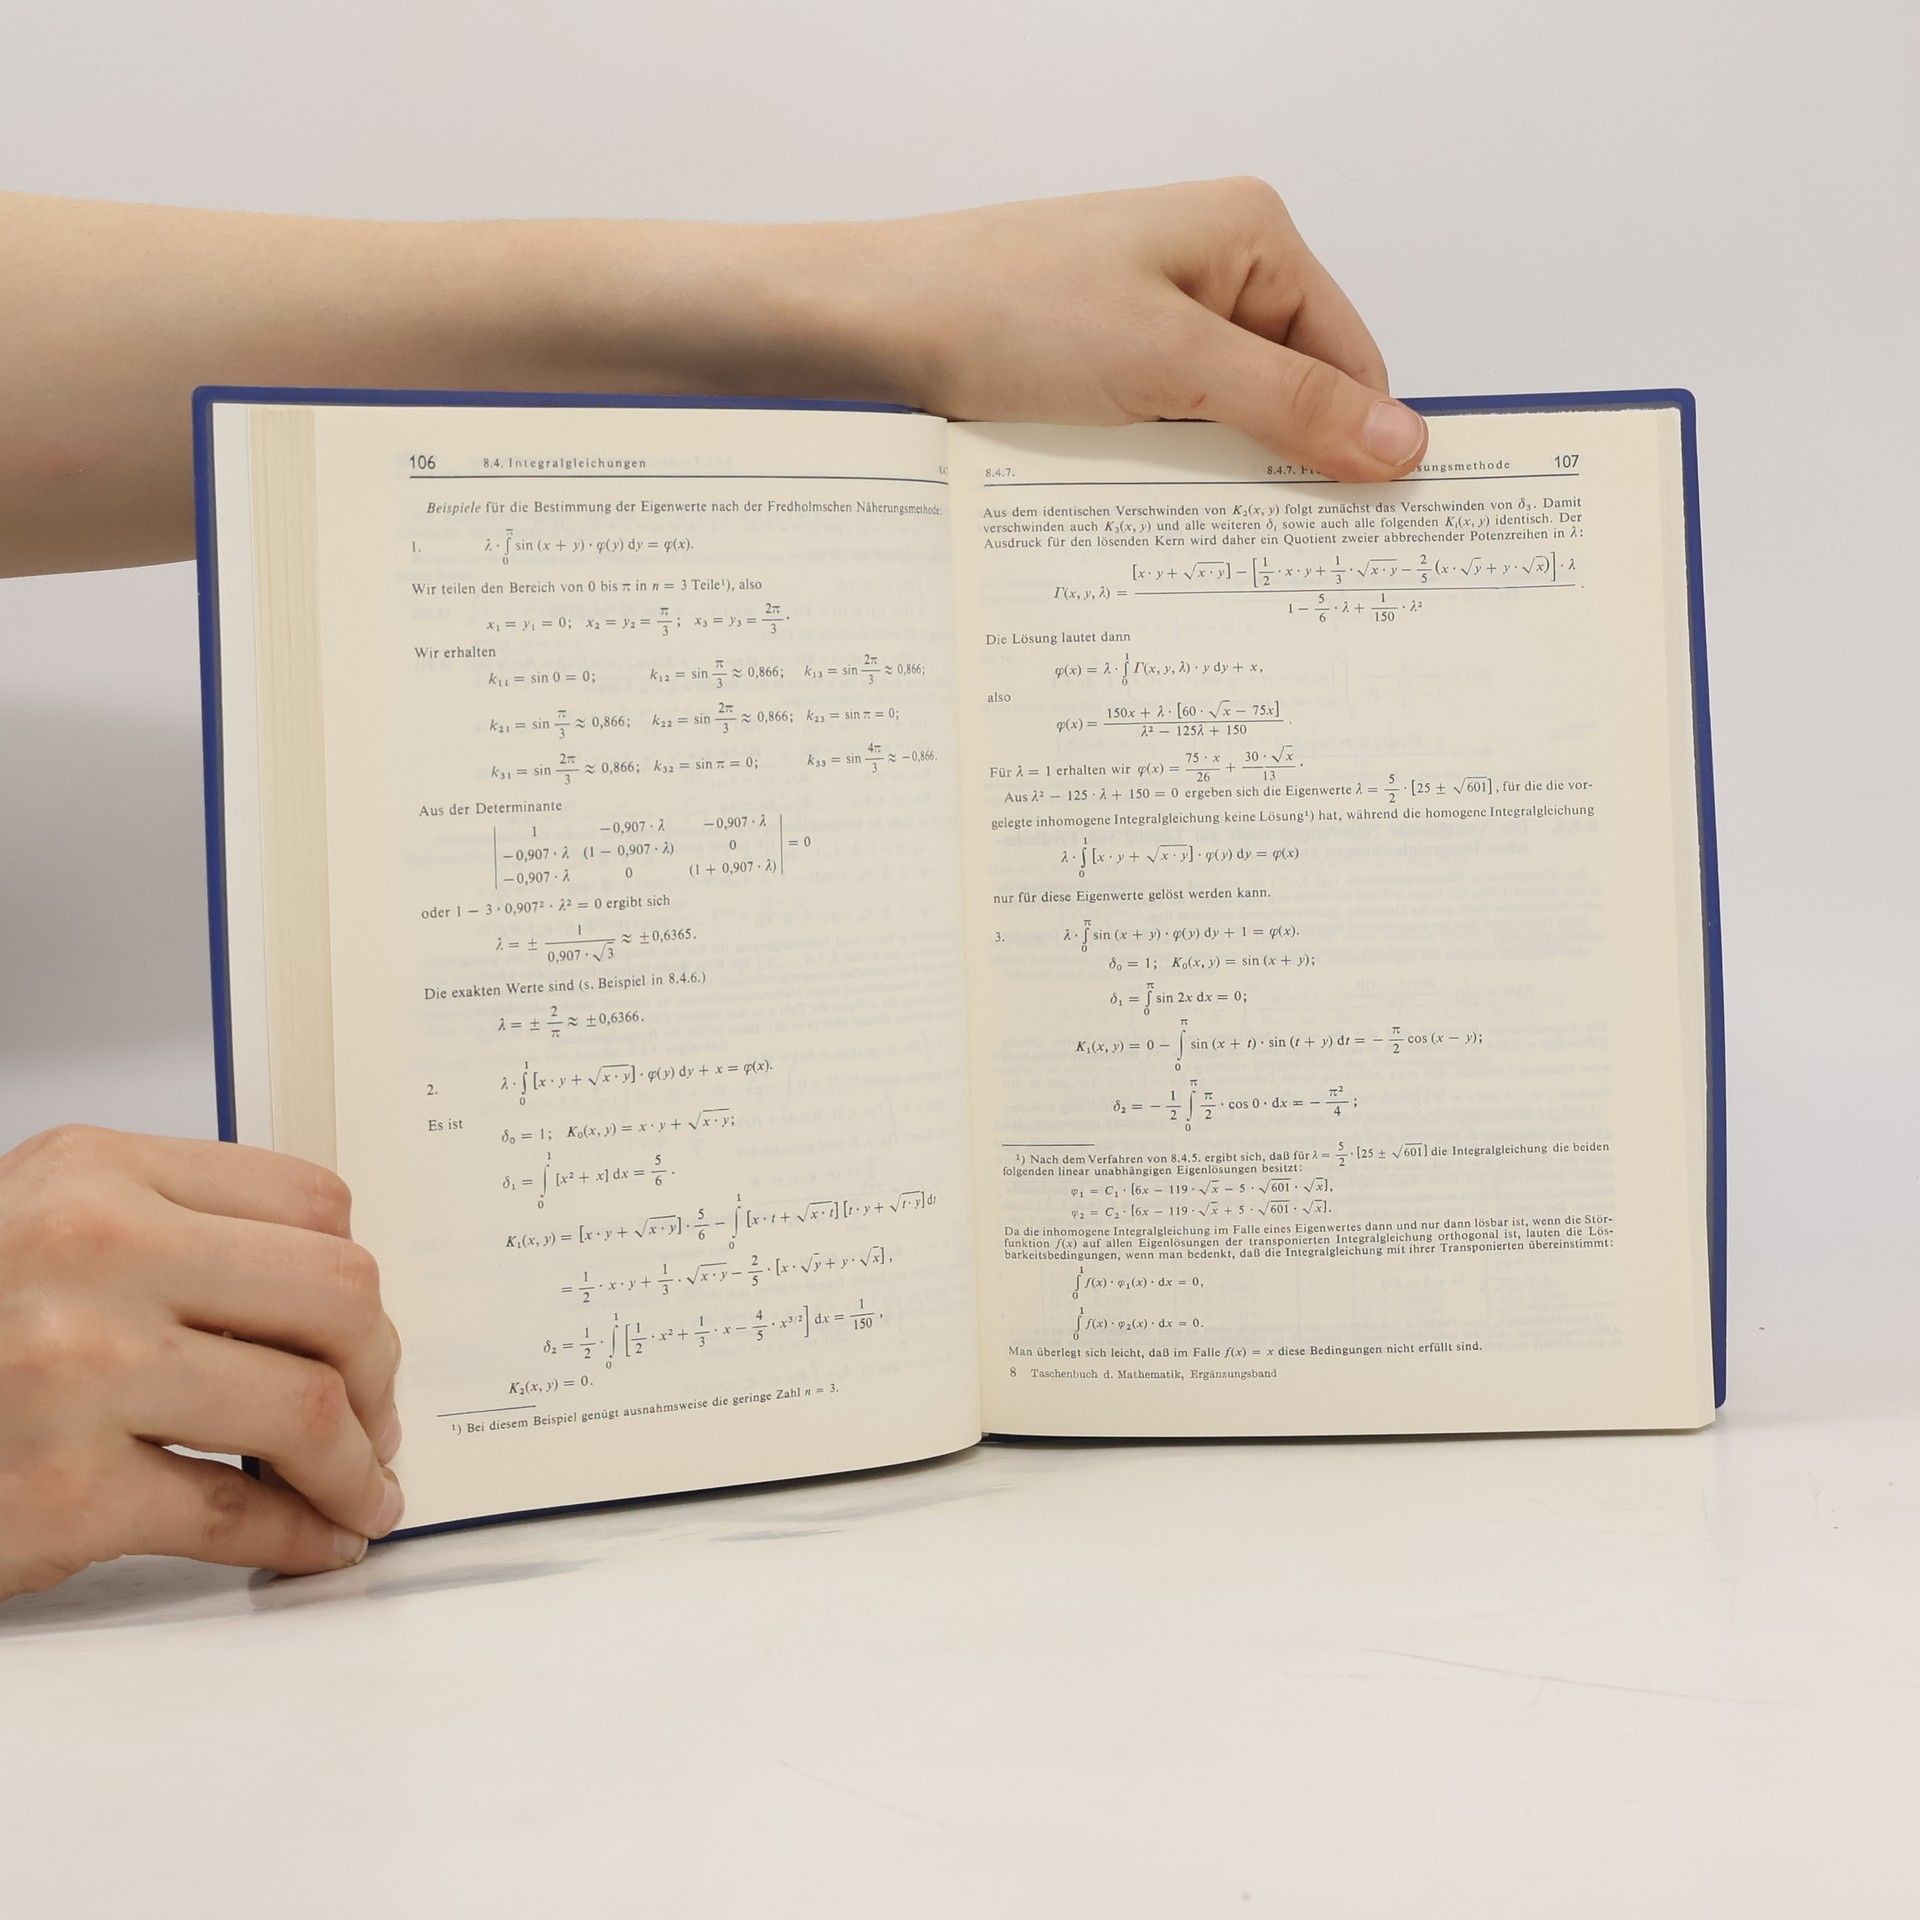 106 8.4. Integralgleichungen
Beispiele für die Bestimmung der Eigenwerte nach der Fredholmschen Näherungsmethode:
1. λ · ∫₀^π sin (x + y) · φ(y) dy = φ(x).
Wir teilen den Bereich von 0 bis π in n = 3 Teile¹), also
x₁ = y₁ = 0; x₂ = y₂ = π/3; x₃ = y₃ = 2π/3.
Wir erhalten
k₁₁ = sin 0 = 0; k₁₂ = sin π/3 ≈ 0,866; k₁₃ = sin 2π/3 ≈ 0,866;
k₂₁ = sin π/3 ≈ 0,866; k₂₂ = sin 2π/3 ≈ 0,866; k₂₃ = sin π = 0;
k₃₁ = sin 2π/3 ≈ 0,866; k₃₂ = sin π = 0; k₃₃ = sin 4π/3 ≈ −0,866.
Aus der Determinante
| 1 −0,907 · λ −0,907 · λ |
| −0,907 · λ (1 − 0,907 · λ) 0 | = 0
| −0,907 · λ 0 (1 + 0,907 · λ) |
oder 1 − 3 · 0,907² · λ² = 0 ergibt sich
λ = ± 1/(0,907 · √3) ≈ ±0,6365.
Die exakten Werte sind (s. Beispiel in 8.4.6.)
λ = ± 2/π ≈ ±0,6366.
2. λ · ∫₀¹ [x · y + √(x · y)] · φ(y) dy + x = φ(x).
Es ist δ₀ = 1; K₀(x, y) = x · y + √(x · y);
δ₁ = ∫₀¹ [x² + x] dx = 5/6.
K₁(x, y) = [x · y + √(x · y)] · 5/6 − ∫₀¹ [x · t + √(x · t)] [t · y + √(t · y)] dt
= 1/2 · x · y + 1/3 · √(x · y) − 2/5 · [x · √y + y · √x],
δ₂ = 1/2 · ∫₀¹ [1/2 · x² + 1/3 · x − 4/5 · x^(3/2)] dx = 1/150,
K₂(x, y) = 0.
¹) Bei diesem Beispiel genügt ausnahmsweise die geringe Zahl n = 3.
8.4.7. 8.4.7. sungsmethode 107
Aus dem identischen Verschwinden von K₂(x, y) folgt zunächst das Verschwinden von δ₃. Damit
verschwinden auch K₃(x, y) und alle weiteren δᵢ sowie auch alle folgenden Kᵢ(x, y) identisch. Der
Ausdruck für den lösenden Kern wird daher ein Quotient zweier abbrechender Potenzreihen in λ:
Γ(x, y, λ) = ([x · y + √(x · y)] − [1/2 · x · y + 1/3 · √(x · y) − 2/5 (x · √y + y · √x)] · λ)/(1 − 5/6 · λ + 1/150 · λ²).
Die Lösung lautet dann
φ(x) = λ · ∫₀¹ Γ(x, y, λ) · y dy + x,
also
φ(x) = (150x + λ · [60 · √x − 75x])/(λ² − 125λ + 150).
Für λ = 1 erhalten wir φ(x) = (75 · x)/26 + (30 · √x)/13.
Aus λ² − 125 · λ + 150 = 0 ergeben sich die Eigenwerte λ = 5/2 · [25 ± √601], für die die vor-
gelegte inhomogene Integralgleichung keine Lösung¹) hat, während die homogene Integralgleichung
λ · ∫₀¹ [x · y + √(x · y)] · φ(y) dy = φ(x)
nur für diese Eigenwerte gelöst werden kann.
3. λ · ∫₀^π sin (x + y) · φ(y) dy + 1 = φ(x).
δ₀ = 1; K₀(x, y) = sin (x + y);
δ₁ = ∫₀^π sin 2x dx = 0;
K₁(x, y) = 0 − ∫₀^π sin (x + t) · sin (t + y) dt = − π/2 cos (x − y);
δ₂ = − 1/2 ∫₀^π π/2 · cos 0 · dx = − π²/4;
¹) Nach dem Verfahren von 8.4.5. ergibt sich, daß für λ = 5/2 · [25 ± √601] die Integralgleichung die beiden
folgenden linear unabhängigen Eigenlösungen besitzt:
φ₁ = C₁ · [6x − 119 · √x − 5 · √601 · √x],
φ₂ = C₂ · [6x − 119 · √x + 5 · √601 · √x].
Da die inhomogene Integralgleichung im Falle eines Eigenwertes dann und nur dann lösbar ist, wenn die Stör-
funktion f(x) auf allen Eigenlösungen der transponierten Integralgleichung orthogonal ist, lauten die Lös-
barkeitsbedingungen, wenn man bedenkt, daß die Integralgleichung mit ihrer Transponierten übereinstimmt:
∫₀¹ f(x) · φ₁(x) · dx = 0,
∫₀¹ f(x) · φ₂(x) · dx = 0.
Man überlegt sich leicht, daß im Falle f(x) = x diese Bedingungen nicht erfüllt sind.
8 Taschenbuch d. Mathematik, Ergänzungsband